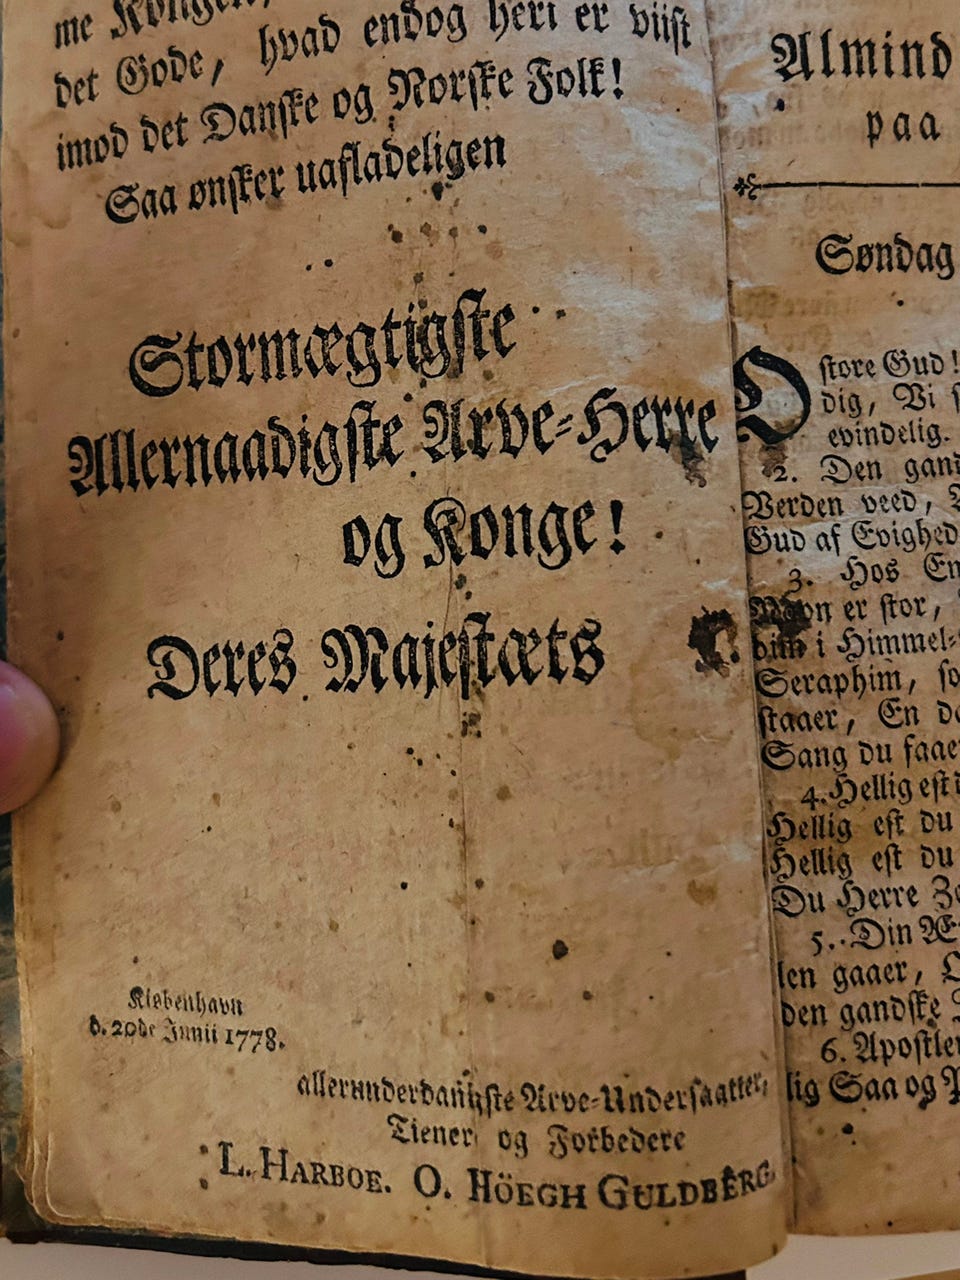 me Kongen,
det Gode, hvad endog heri er viist
imod det Danske og Norske Folk!
Saa ønsker uafladeligen
Stormægtigste
Allernaadigste Arve-Herre
og Konge!
Deres Majestæts
Kiøbenhavn
d. 20de Junii 1778.
allerunderdanigste Arve-Undersaatter,
Tienere og Forbedere
L. HARBOE. O. HÖEGH GULDBERG.
Almind
paa
Søndag
O store Gud!
dig, Vi
evindelig.
2. Den gand
Verden veed,
Gud af Evighed
3. Hos En
Navn er stor,
bim i Himmel-
Seraphim, so
staaer, En
Sang du faaer
4. Hellig est
Hellig est du
Hellig est du
Du Herre Ze
5. Din Æ
len gaaer,
den gandske
6. Apostle
lig Saa og P